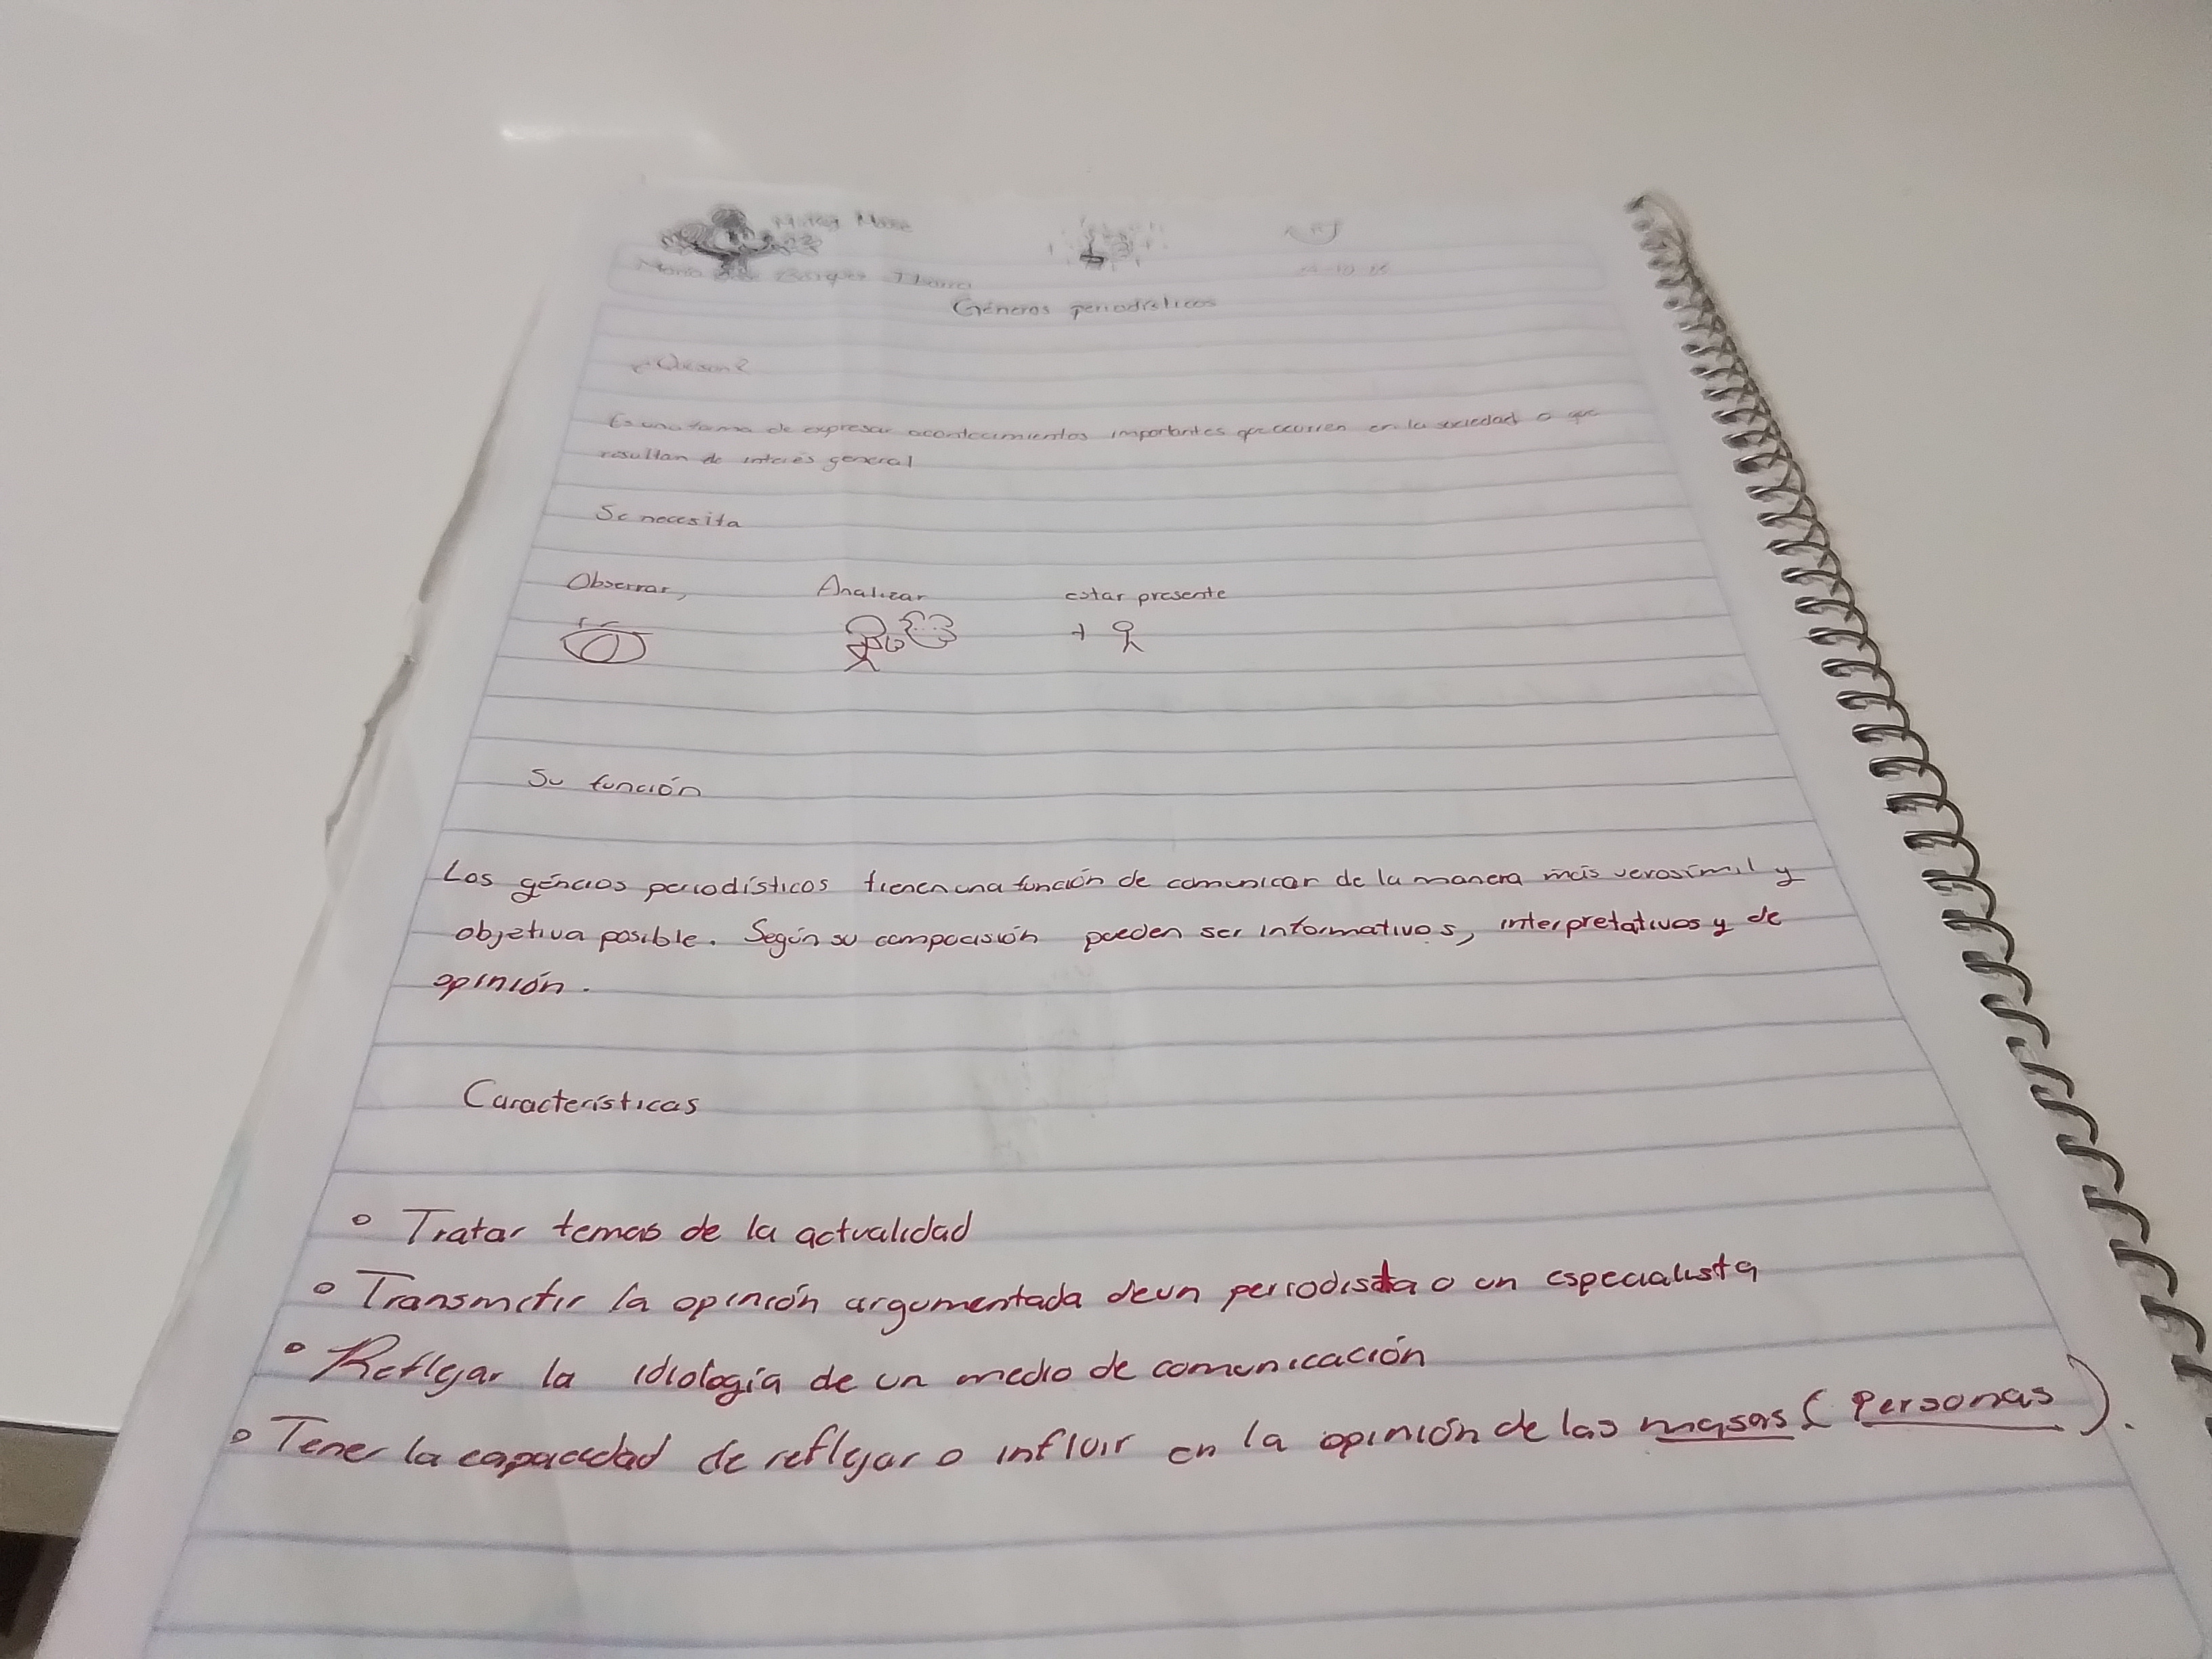 Mickey Mouse
María Ibarra
Géneros periodísticos
¿Qué son?
Es una forma de expresar acontecimientos importantes que ocurren en la sociedad o que
resultan de interés general
Se necesita
Observar, Analizar estar presente
Su función
Los géneros periodísticos tienen una función de comunicar de la manera más verosímil y
objetiva posible. Según su compocisión pueden ser informativos, interpretativos y de
opinión.
Características
Tratar temas de la actualidad
Transmitir la opinión argumentada de un periodista o un especialista
Reflejar la idiología de un medio de comunicación
Tener la capacidad de reflejar o influir en la opinión de las masas (Personas).